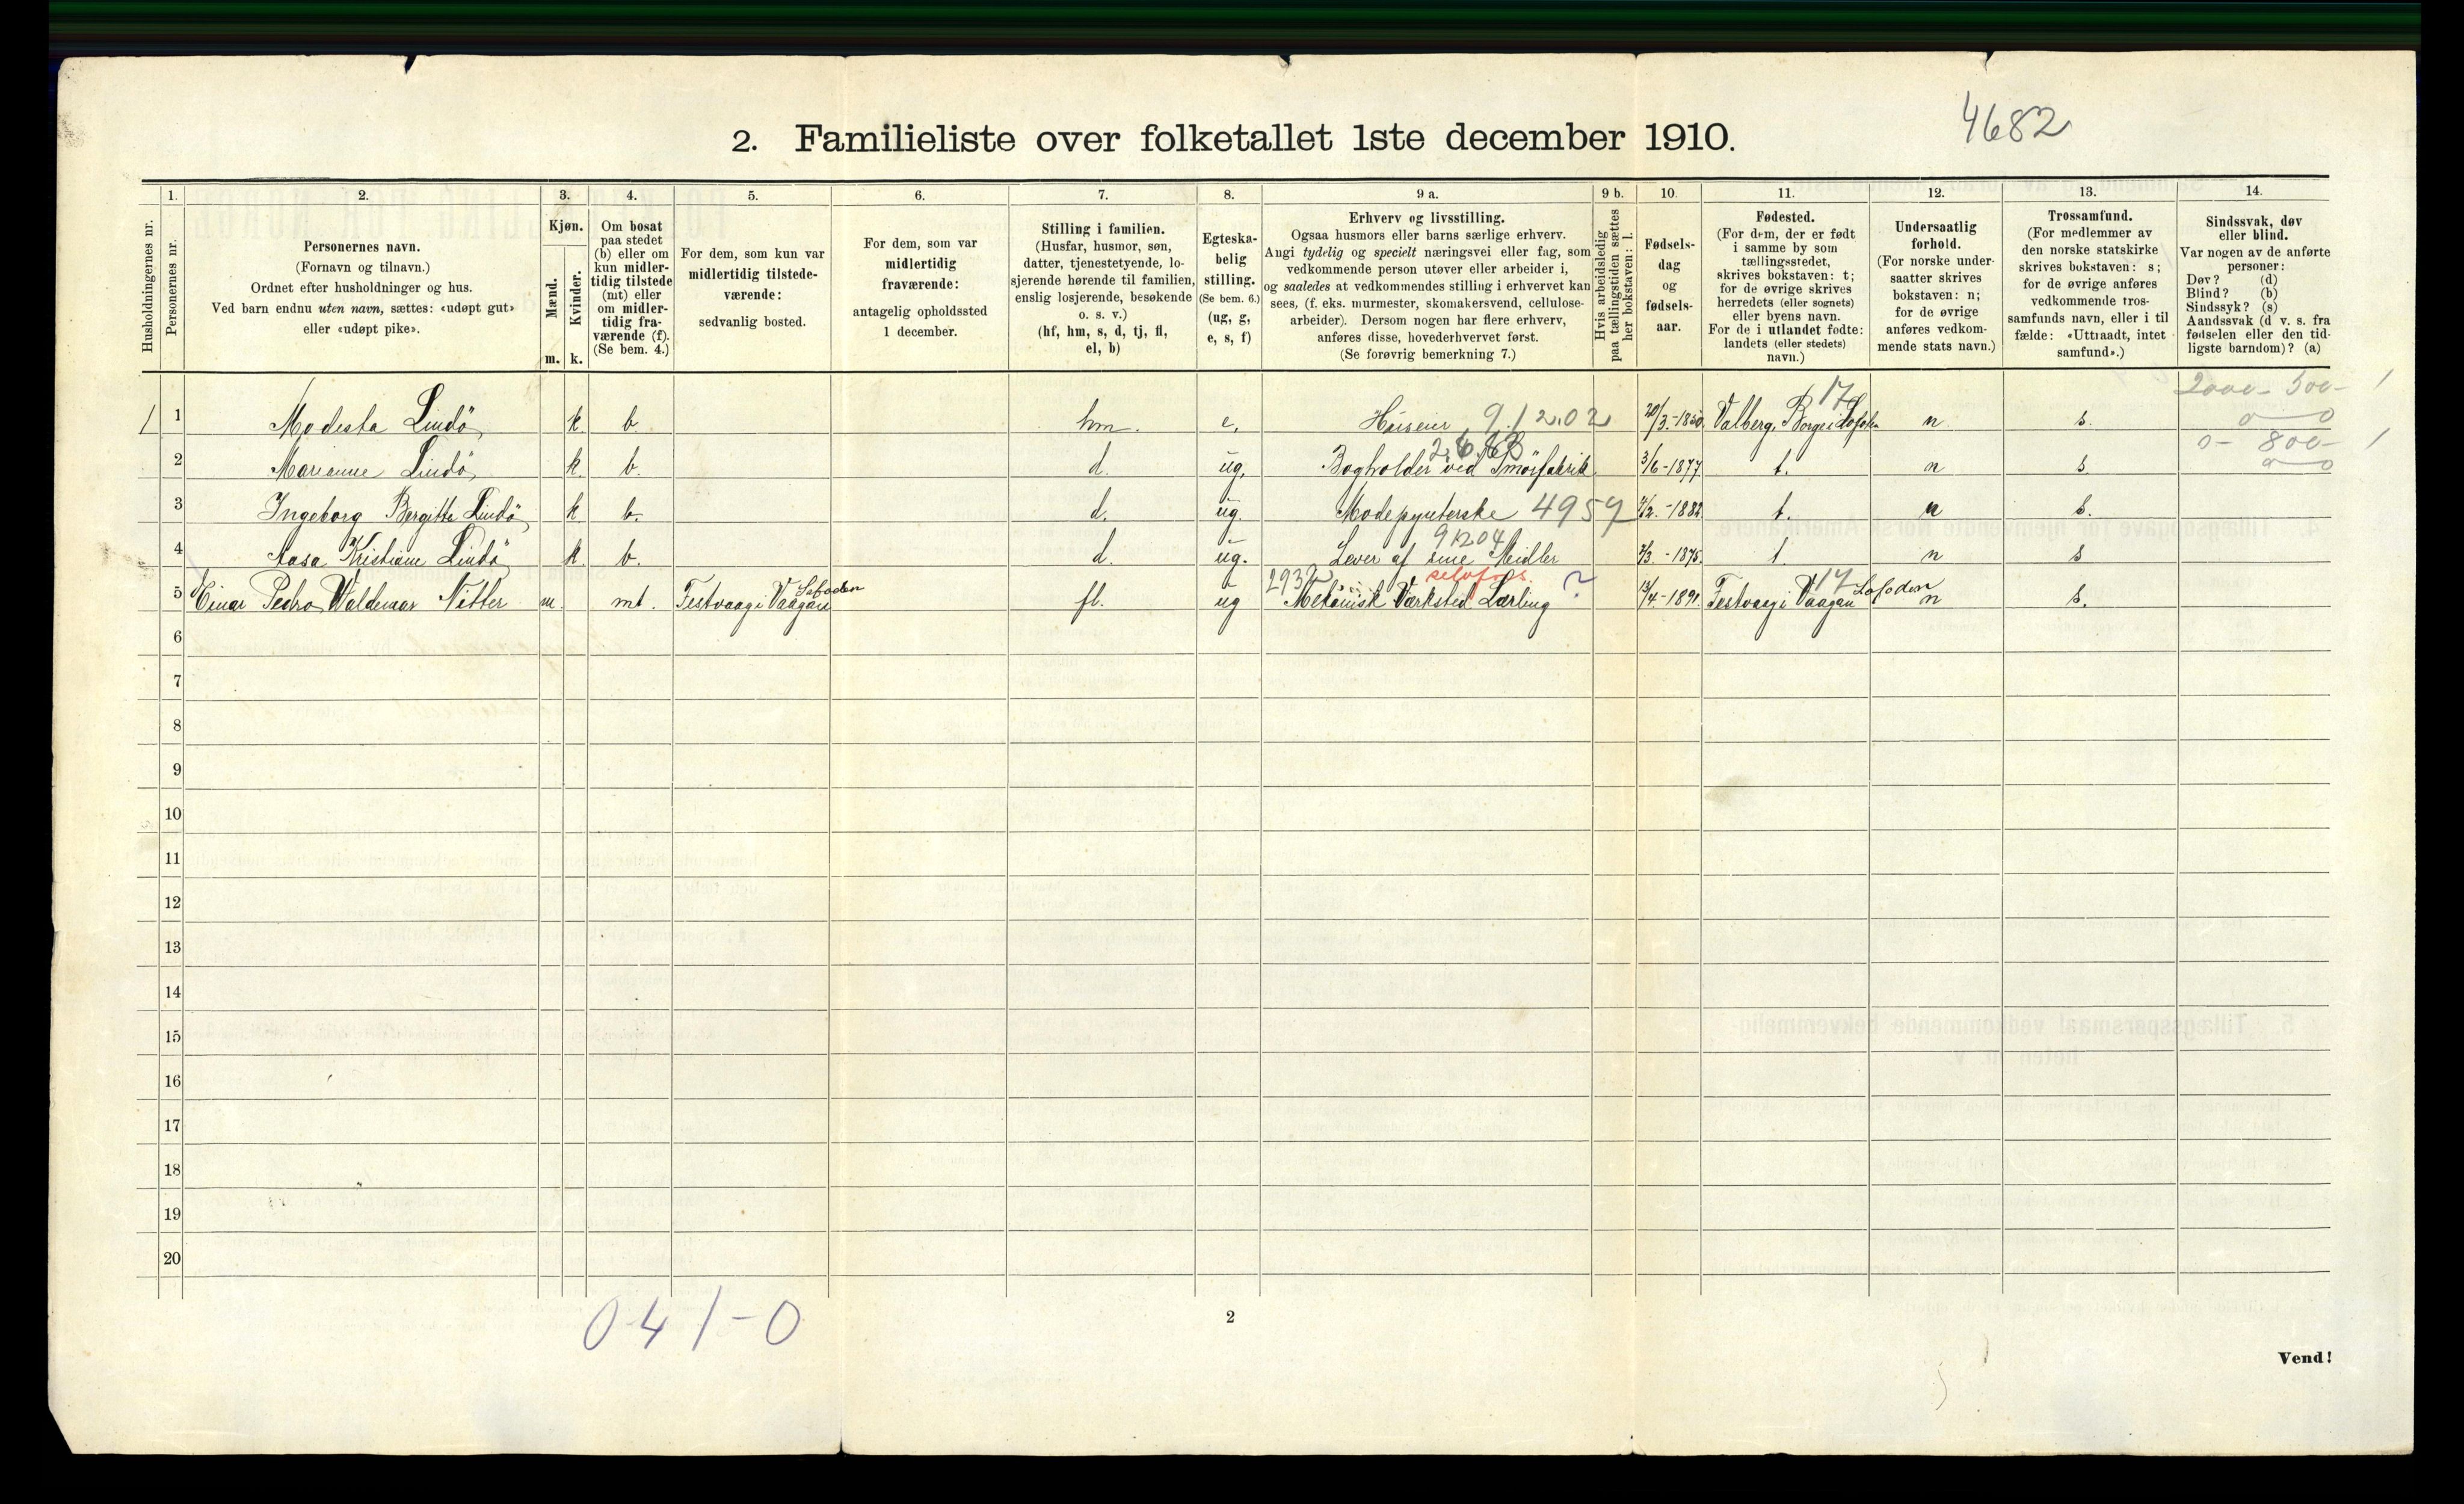 4682
2. Familieliste over folketallet 1ste december 1910.
Husholdningernes nr.
1.
Personernes nr.
2.
Personernes navn.
(Fornavn og tilnavn.)
Ordnet efter husholdninger og hus.
Ved barn endnu uten navn, sættes: «udøpt gut»
eller «udøpt pike».
3.
Kjøn.
Mænd.
m.
Kvinder.
k.
4.
Om bosat
paa stedet
(b) eller om
kun midler-
tidig tilstede
(mt) eller
om midler-
tidig fra-
værende (f).
(Se bem. 4.)
5.
For dem, som kun var
midlertidig tilstede-
værende:
sedvanlig bosted.
6.
For dem, som var
midlertidig
fraværende:
antagelig opholdssted
1 december.
7.
Stilling i familien.
(Husfar, husmor, søn,
datter, tjenestetyende, lo-
sjerende hørende til familien,
enslig losjerende, besøkende
o. s. v.)
(hf, hm, s, d, tj, fl,
el, b)
8.
Egteska-
belig
stilling.
(Se bem. 6.)
(ug, g,
e, s, f)
9 a.
Erhverv og livsstilling.
Ogsaa husmors eller barns særlige erhverv.
Angi tydelig og specielt næringsvei eller fag, som
vedkommende person utøver eller arbeider i,
og saaledes at vedkommendes stilling i erhvervet kan
sees, (f. eks. murmester, skomakersvend, cellulose-
arbeider). Dersom nogen har flere erhverv,
anføres disse, hovederhvervet først.
(Se forøvrig bemerkning 7.)
9 b.
Hvis arbeidsledig
paa tællingstiden sættes
her bokstaven: l.
10.
Fødsels-
dag
og
fødsels-
aar.
11.
Fødested.
(For dem, der er født
i samme by som
tællingsstedet,
skrives bokstaven: t;
for de øvrige skrives
herredets (eller sognets)
eller byens navn.
For de i utlandet fødte:
landets (eller stedets)
navn.)
12.
Undersaatlig
forhold.
(For norske under-
saatter skrives
bokstaven: n;
for de øvrige
anføres vedkom-
mende stats navn.)
13.
Trossamfund.
(For medlemmer av
den norske statskirke
skrives bokstaven: s;
for de øvrige anføres
vedkommende tros-
samfunds navn, eller i til
fælde: «Uttraadt, intet
samfund».)
14.
Sindssvak, døv
eller blind.
Var nogen av de anførte
personer:
Døv? (d)
Blind? (b)
Sindssyk? (s)
Aandssvak (d v. s. fra
fødselen eller den tid-
ligste barndom)? (a)
1 1 Modesta Lindö k b hm. e, Huseier 9.12.02 20/3-1850. Valberg, Borge i Lofoten 17 n s. 2000 - 500 - 1
0 0
2 Marianne Lindö k. b. d. ug, Bogholder ved Smørfabrik 3/6-1877. t. n s. 0 - 800 - 1
0 0
3 Ingeborg Bergitte Lindö k b. d. ug. Modepynterske 4959 1882 t. n s.
4 Aasa Kristiane Lindö k. b. d. ug. Lever af sine Midler 91204 1875. t n s
5 Einar Pedro Waldemar Nitter m. mt. Festvaag i Vaagan Lofoden fl. ug Mekanisk Værksted Lærling ? 2932 selvfors. 13/4-1891. Festvaag i Vaagan Lofoden 17 n s.
6
7
8
9
10
11
12
13
14
15
16
17
18
19
20
0-4 1-0
2
Vend!